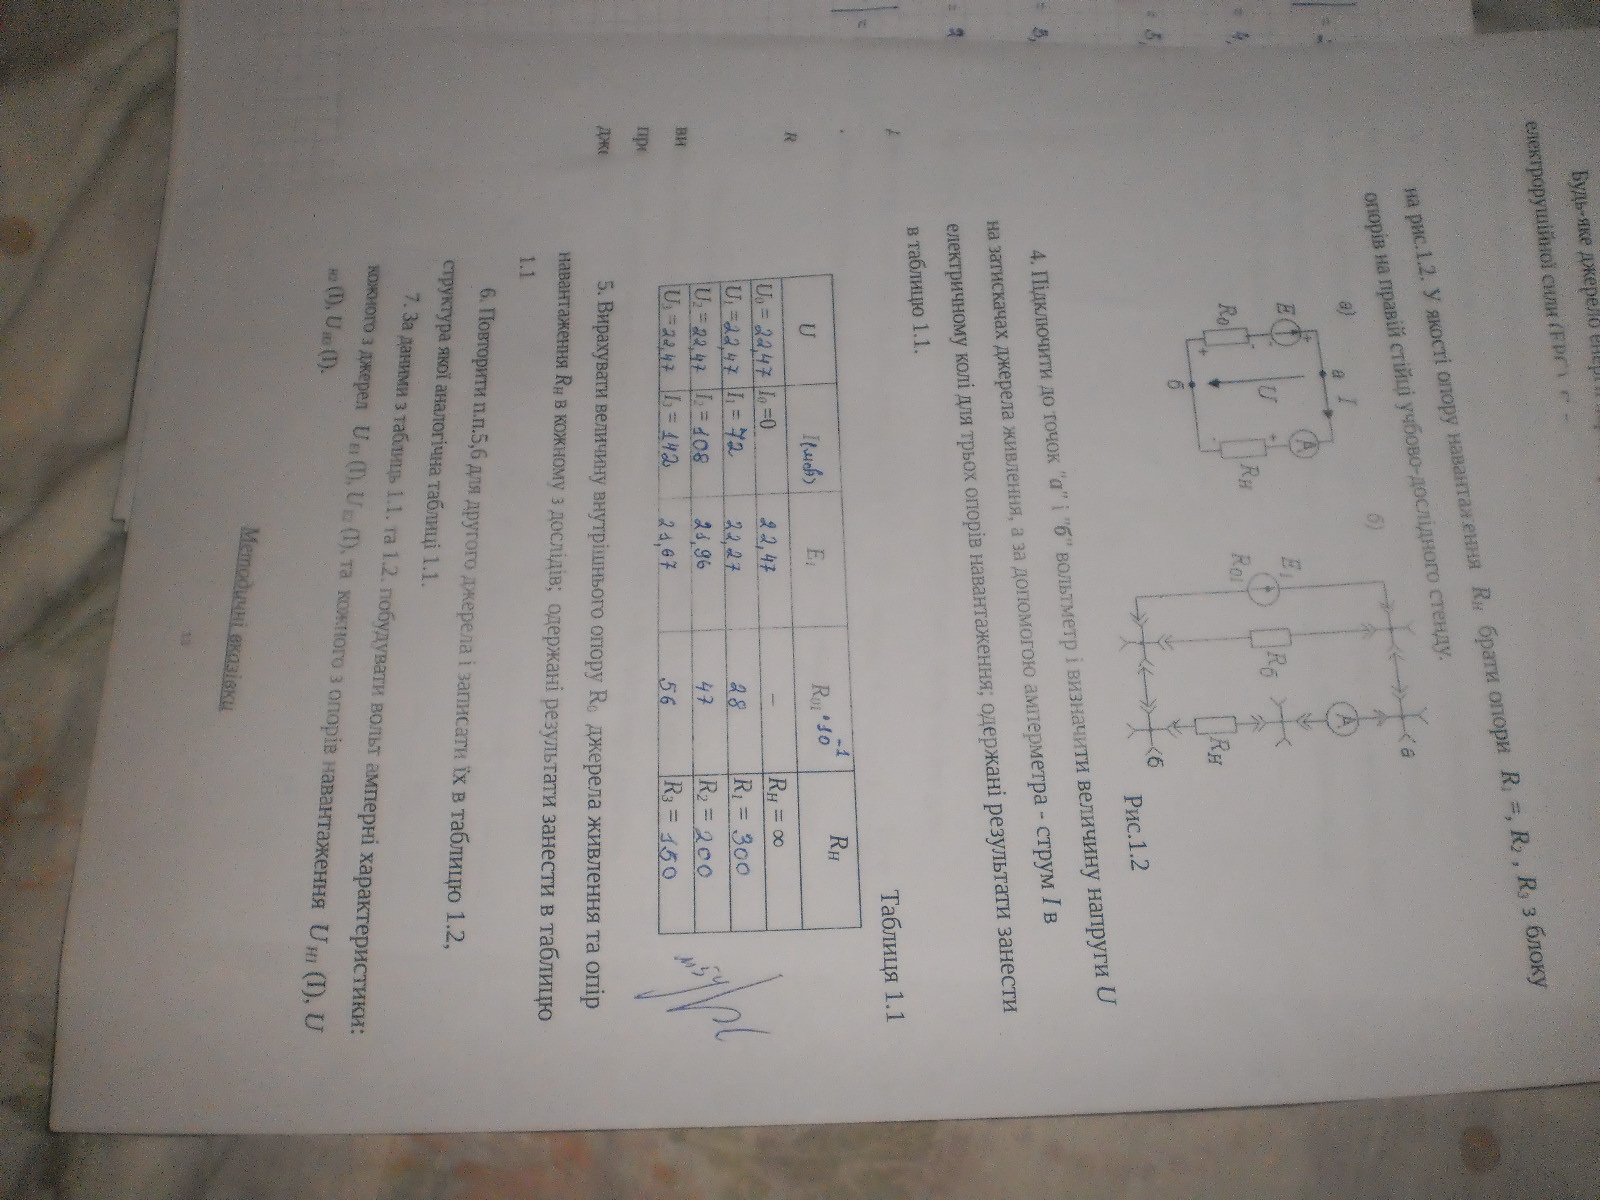 Будь-яке джерело енергії
електрорушійної сили (ЕРС)
на рис.1.2. У якості опору навантаження Rн брати опори R₁ =, R₂ , R₃ з блоку
опорів на правій стійці учбово-дослідного стенду.
а)
б)
E
R₀
+
-
а
I
U
б
A
Rн
E₁
R₀₁
Rб
A
Rн
а
б
Рис.1.2
4. Підключити до точок "а" і "б" вольтметр і визначити величину напруги U
на затискачах джерела живлення, а за допомогою амперметра - струм I в
електричному колі для трьох опорів навантаження; одержані результати занести
в таблицю 1.1.
Таблиця 1.1
U I E₁ R₀₁·10⁻¹ Rн
U₀ = 22,47 I₀ =0 22,47 - Rн = ∞
U₁ = 22,47 I₁ = 72 22,27 28 R₁ = 300
U₂ = 22,47 I₂ = 108 21,96 47 R₂ = 200
U₃ = 22,47 I₃ = 142 21,67 56 R₃ = 150
5. Вирахувати величину внутрішнього опору R₀ джерела живлення та опір
навантаження Rн в кожному з дослідів; одержані результати занести в таблицю
1.1
6. Повторити п.п.5,6 для другого джерела і записати їх в таблицю 1.2,
структура якої аналогічна таблиці 1.1.
7. За даними з таблиць 1.1. та 1.2. побудувати вольт амперні характеристики:
кожного з джерел U E1 (I), U E2 (I), та кожного з опорів навантаження U н1 (I), U
н2 (I), U н3 (I).
Методичні вказівки